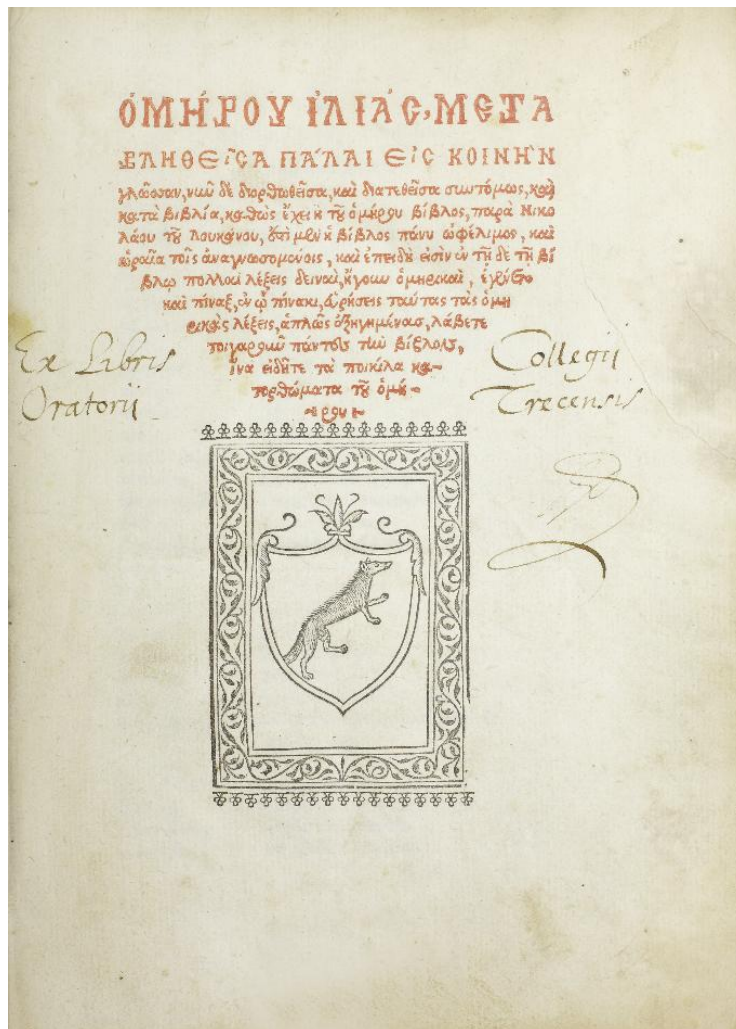 ὉΜΉΡΟΥ ἸΛΙΆΣ, ΜΕΤΑ
ΒΛΗΘΕῖΣΑ ΠΆΛΑΙ ΕἰΣ ΚΟΙΝῊΝ
γλῶσσαν, νῦν δὲ διορθωθεῖσα, καὶ διατεθεῖσα συντόμως, καὶ
κατὰ βιβλία, καθὼς ἔχει ἡ τοῦ ὁμήρου βίβλος, παρὰ Νικο
λάου τοῦ Λουκάνου, ἔστι μὲν ἡ βίβλος πάνυ ὠφέλιμος, καὶ
ὡραῖα τοῖς ἀναγνωσομένοις, καὶ ἐπειδὴ εἰσὶν ἐν τῇ δε τῇ βί
βλῳ πολλαὶ λέξεις δειναὶ, ἤγουν ὁμηρικαὶ, ἐγένετο
καὶ πίναξ, ἐν ᾧ πίνακι, εὑρήσεις ταύτας τὰς ὁμη
ρικὰς λέξεις, ἁπλῶς ἐξηγημένας, λάβετε
τοιγαροῦν πάντες τὴν βίβλον,
ἵνα εἰδῆτε τὰ ποικίλα κα-
τορθώματα τοῦ ὁμή-
ρου
Ex Libris Collegii
Oratorii Trecensis